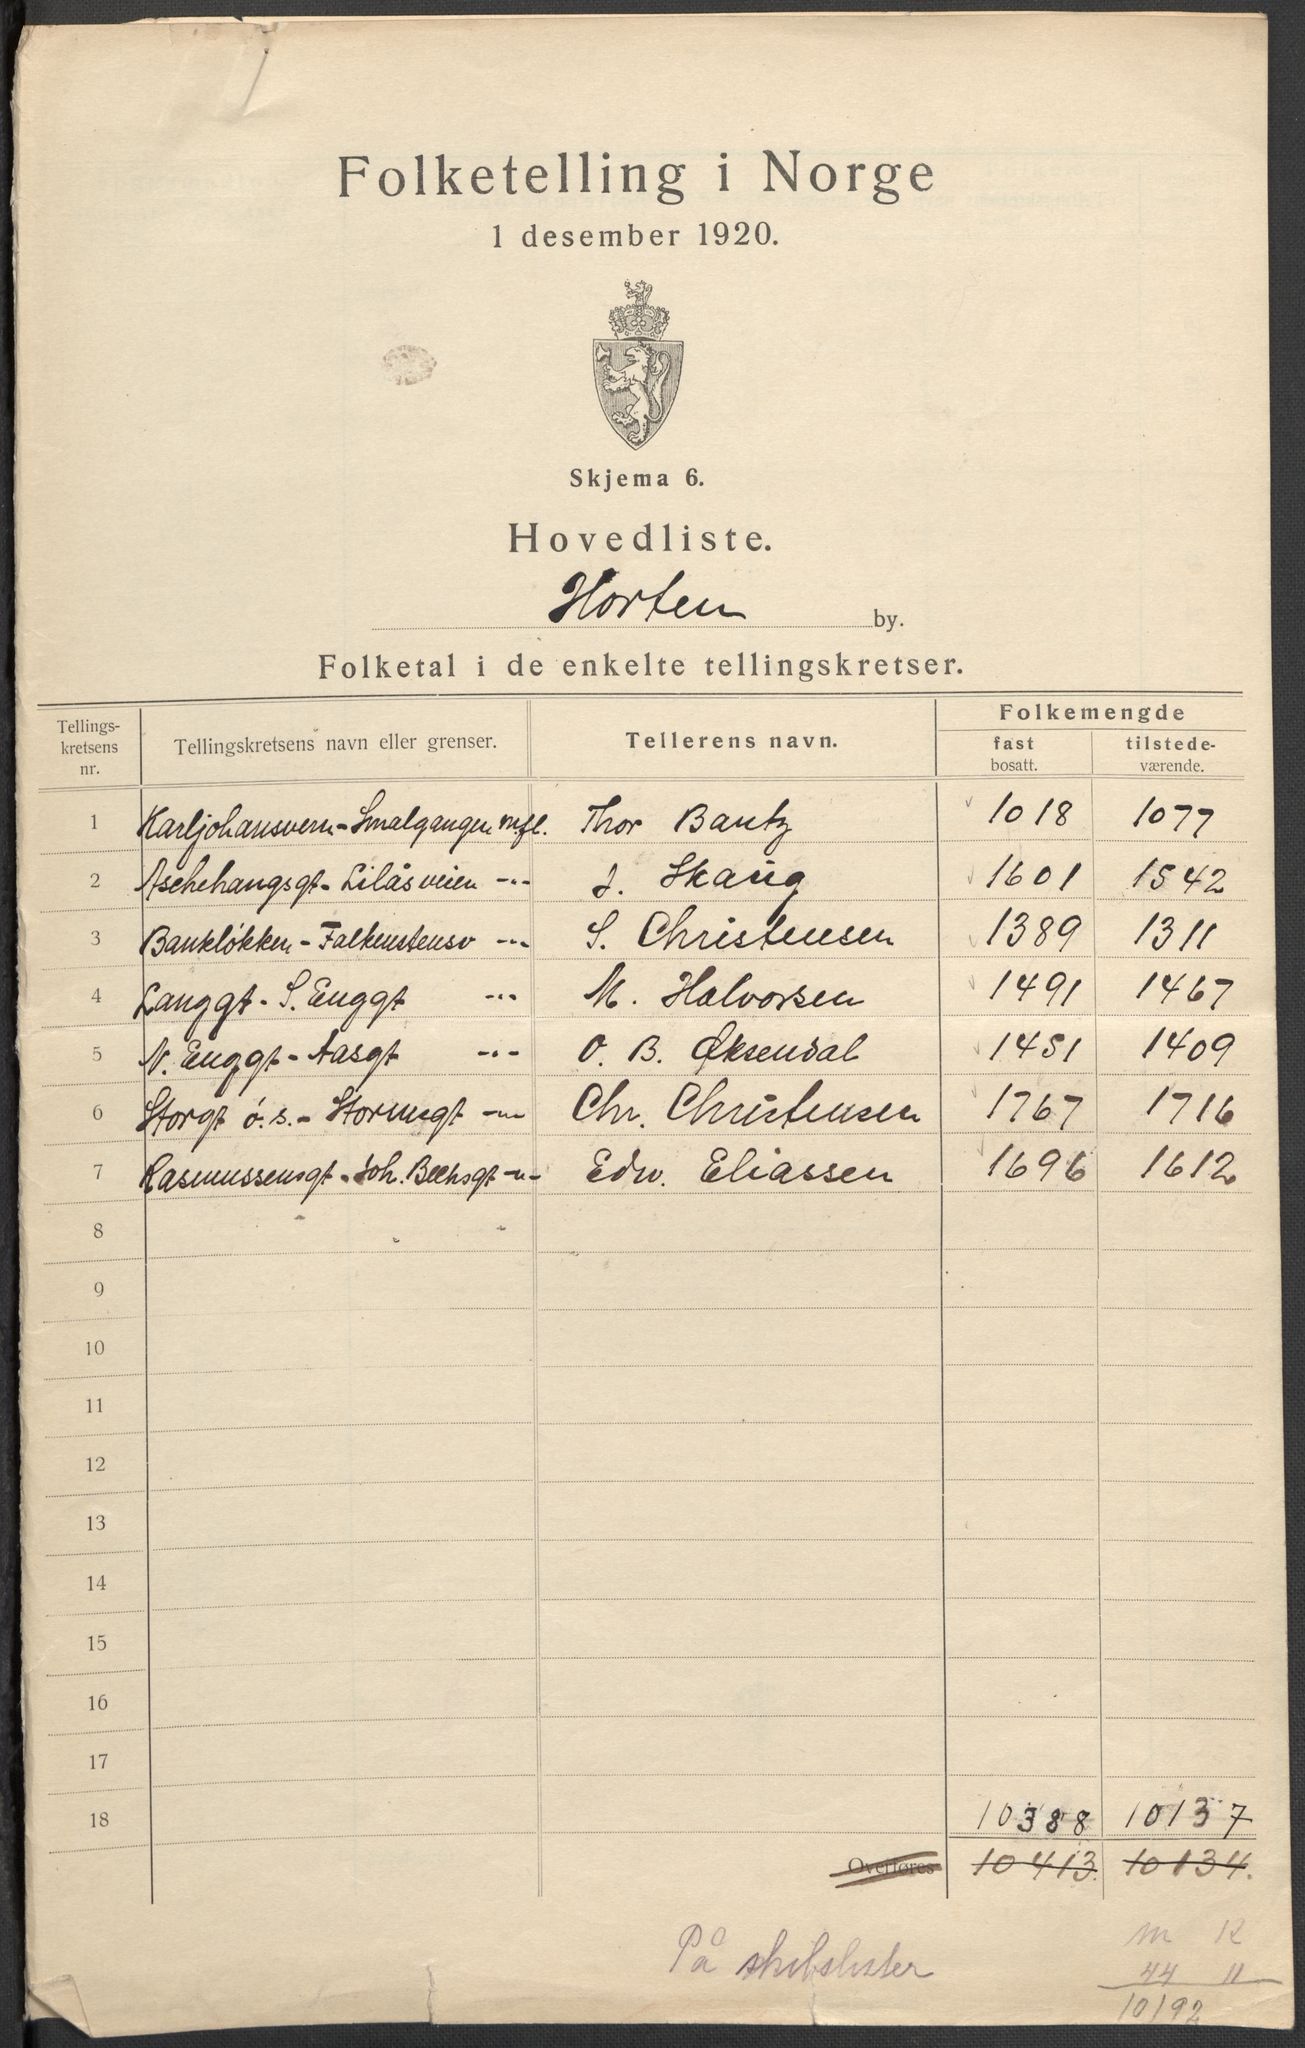 Folketelling i Norge
1 desember 1920.
Skjema 6.
Hovedliste.
Horten by.
Folketal i de enkelte tellingskretser.
Tellings-kretsens nr. Tellingskretsens navn eller grenser. Tellerens navn. Folkemengde fast bosatt. tilstede-værende.
1 Karljohansvern - Smalgangen m.fl. Thor Bantz 1018 1077
2 Aschehaugsgt - Liläsveien -"- J. Skaug 1601 1542
3 Bankløkken - Falkenstensv -"- S. Christensen 1389 1311
4 Langgt - S. Enggt -"- M. Halvorsen 1491 1467
5 N. Enggt - Aasgt -"- O. B. Øksendal 1451 1409
6 Storgt ö.s. - Stormgt -"- Chr. Christensen 1767 1716
7 Rasmussensgt - Joh. Bechsgt -"- Edw. Eliassen 1696 1612
8
9
10
11
12
13
14
15
16
17
18 10388 10137
Overføres 10413. 10134.
På skibslister
m k
44 11
10192